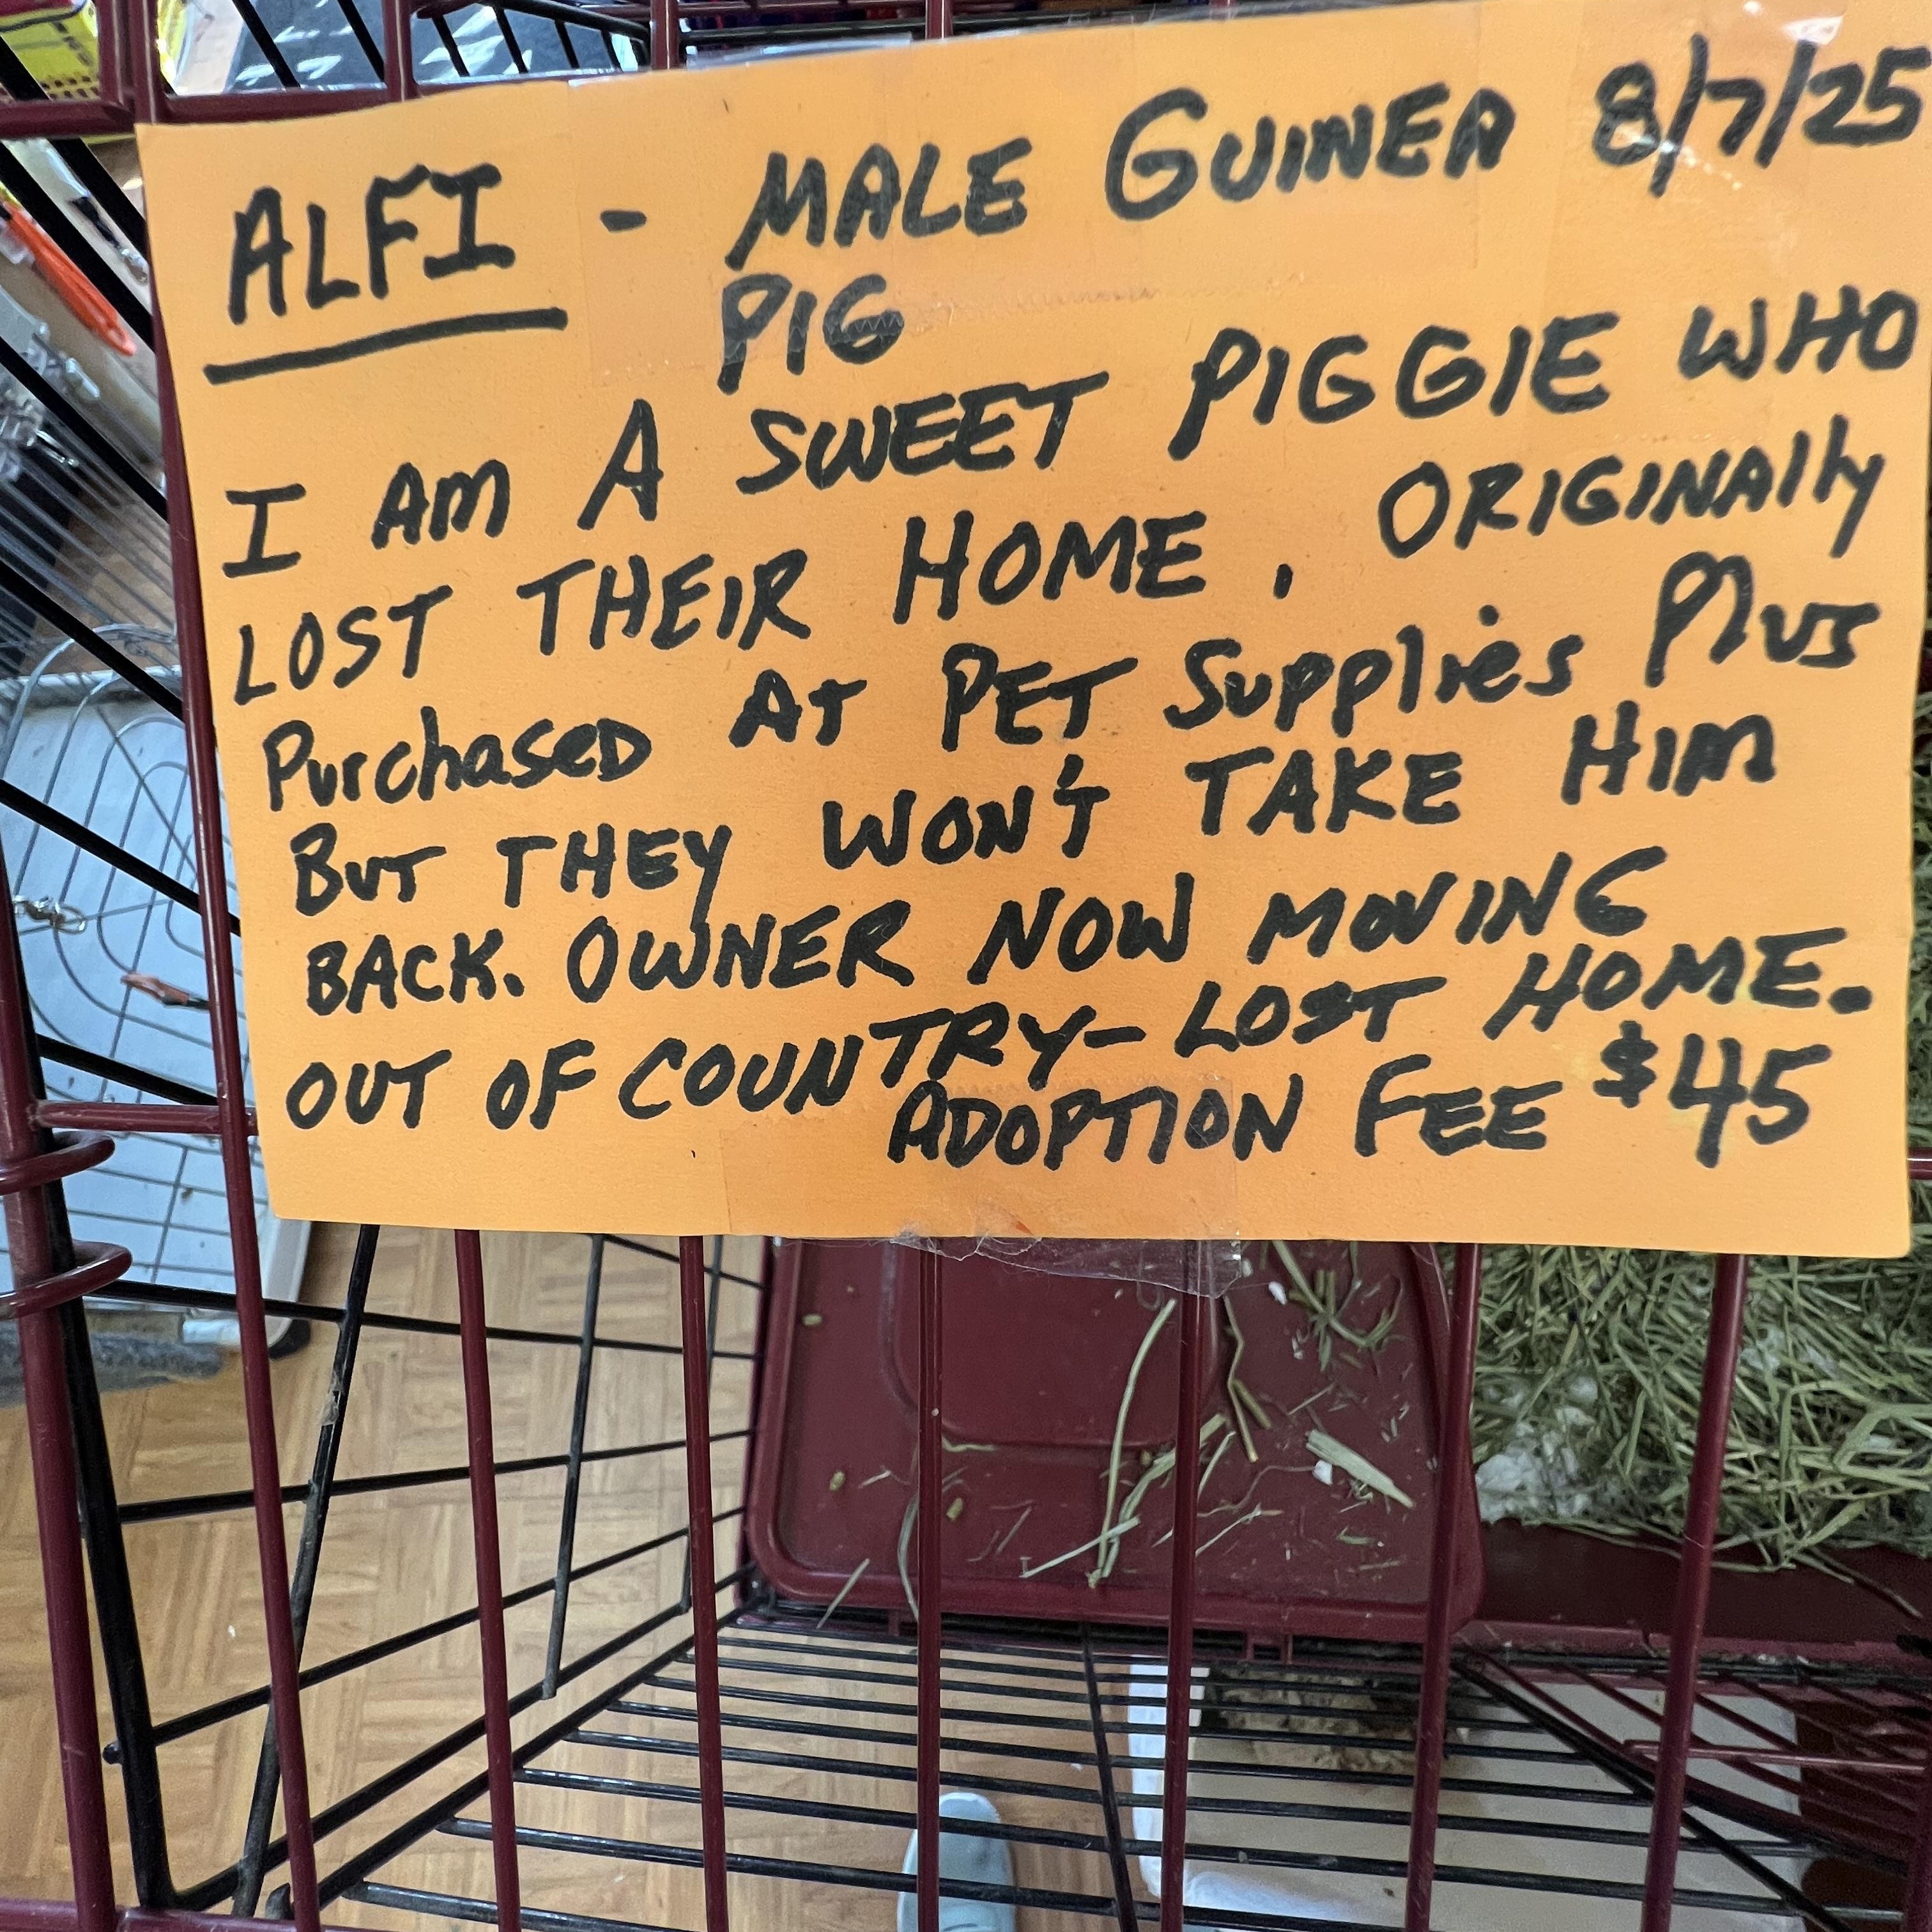 ALFI - MALE GUINEA 8/7/25
PIG
I AM A SWEET PIGGIE WHO
LOST THEIR HOME. ORIGINAlly
PurchaseD AT PET SuppliEs Plus
But THEY WON'T TAKE HIM
BACK. OWNER NOW MOVING
OUT OF COUNTRY- LOST HOME.
ADOPTION FEE $45